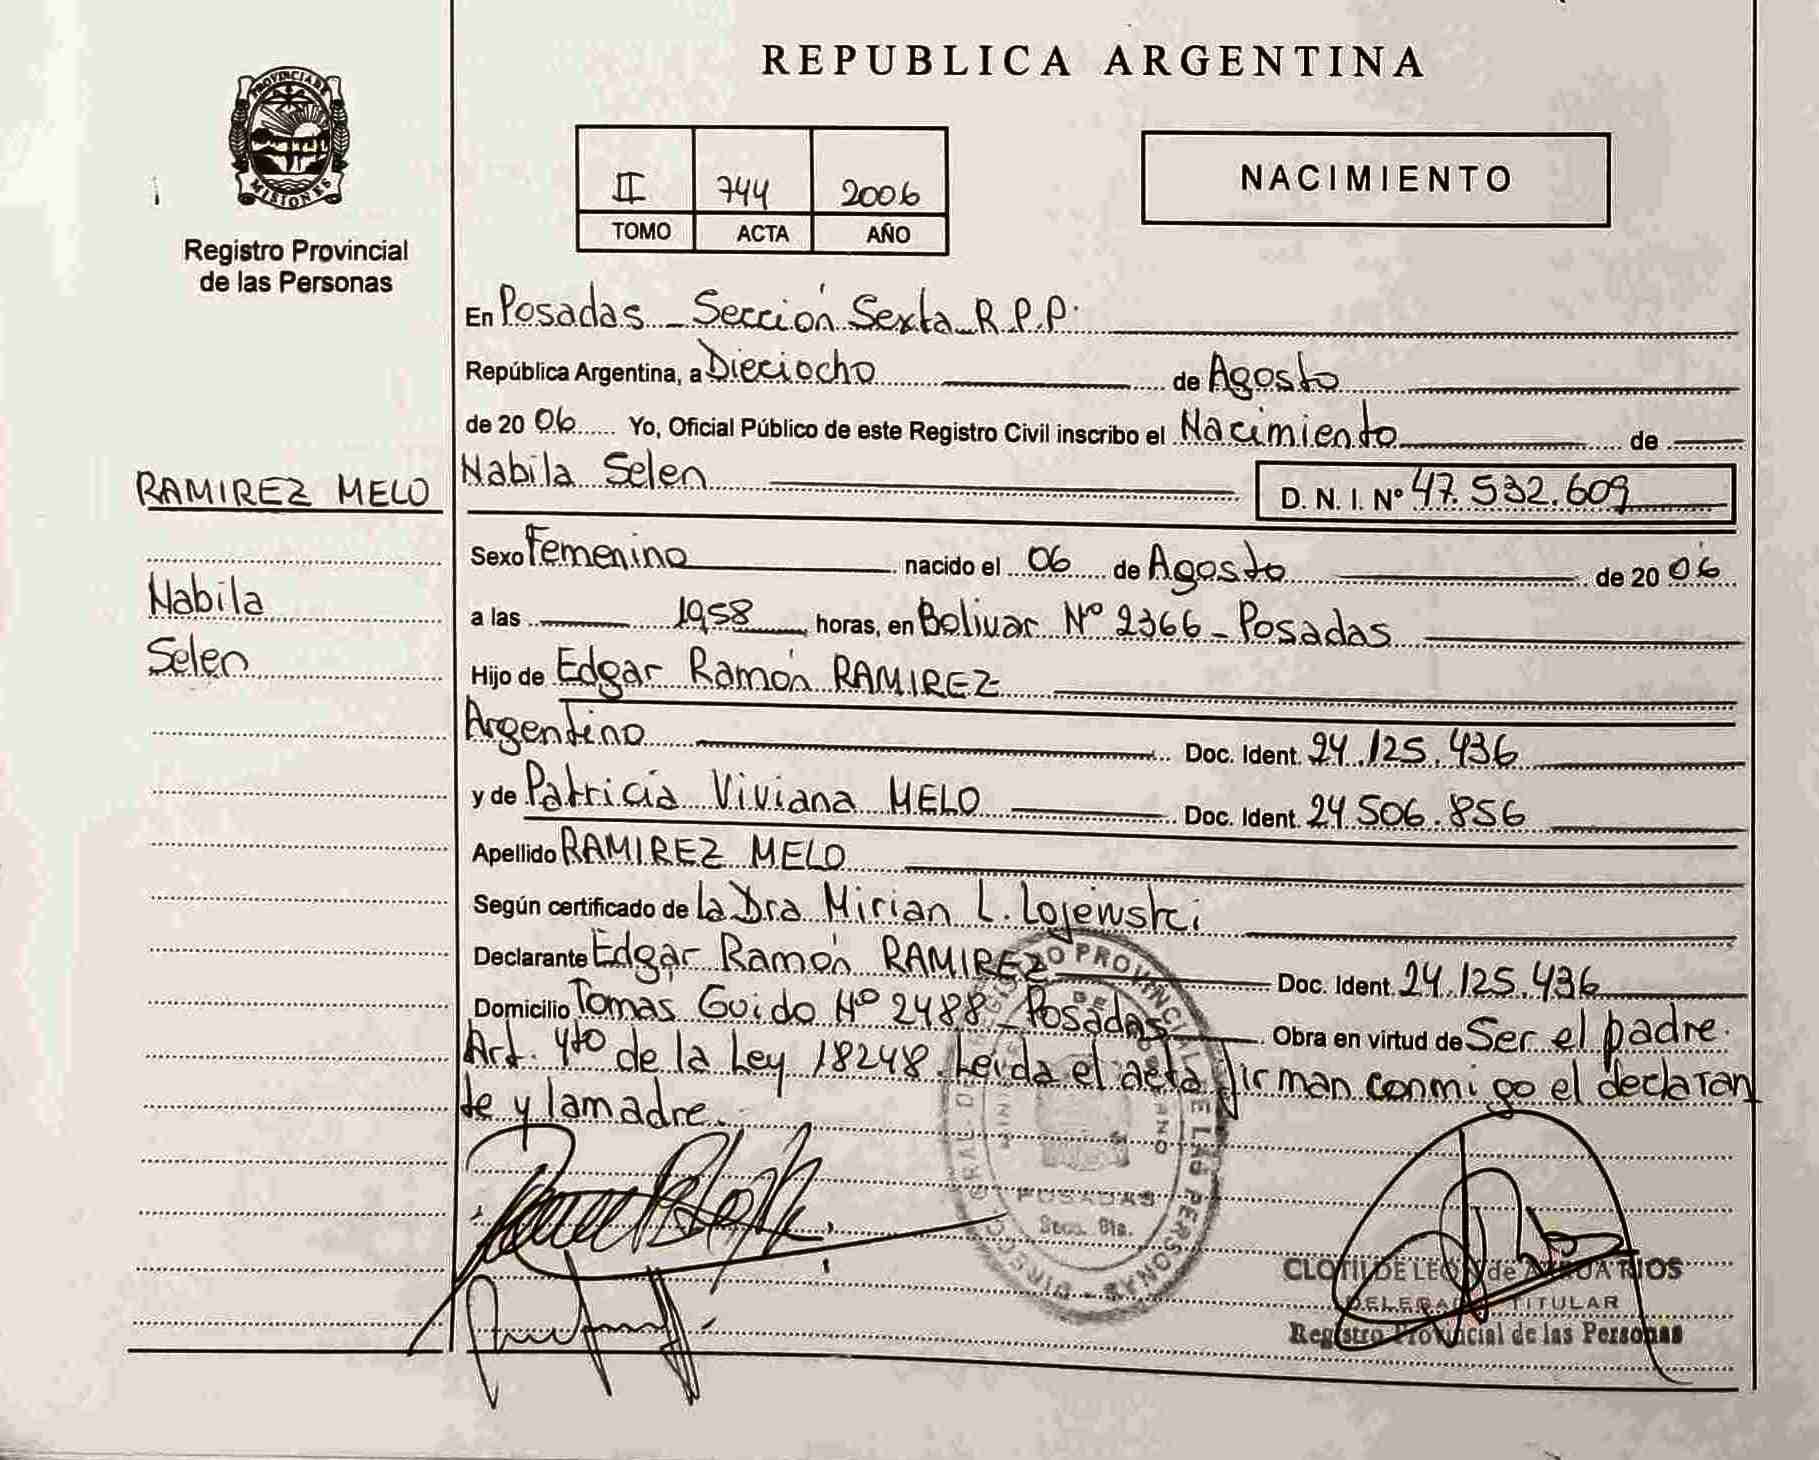 PROVINCIA DE
MISIONES
Registro Provincial
de las Personas
REPUBLICA ARGENTINA
II 744 2006
TOMO ACTA AÑO
NACIMIENTO
En Posadas - Sección Sexta R.P.P.
República Argentina, a Dieciocho de Agosto
de 2006 Yo, Oficial Público de este Registro Civil inscribo el Nacimiento de
RAMIREZ MELO
Nabila Selen D. N. I. Nº 47.532.609
Sexo Femenino nacido el 06 de Agosto de 2006
Nabila
Selen
a las 1958 horas, en Bolivar Nº 2366 - Posadas
Hijo de Edgar Ramón RAMIREZ
Argentino Doc. Ident. 24.125.436
y de Patricia Viviana MELO Doc. Ident. 24.506.856
Apellido RAMIREZ MELO
Según certificado de la Dra Mirian L. Lojewski
Declarante Edgar Ramón RAMIREZ Doc. Ident. 24.125.436
Domicilio Tomas Guido Nº 2488 - Posadas Obra en virtud de Ser el padre.
Art. 4to de la Ley 18248. Leida el acta firman conmigo el declaran
te y la madre.
REGISTRO PROVINCIAL DE LAS PERSONAS
POSADAS
CLOTILDE LEON de
DELEGADA TITULAR
Registro Provincial de las Personas